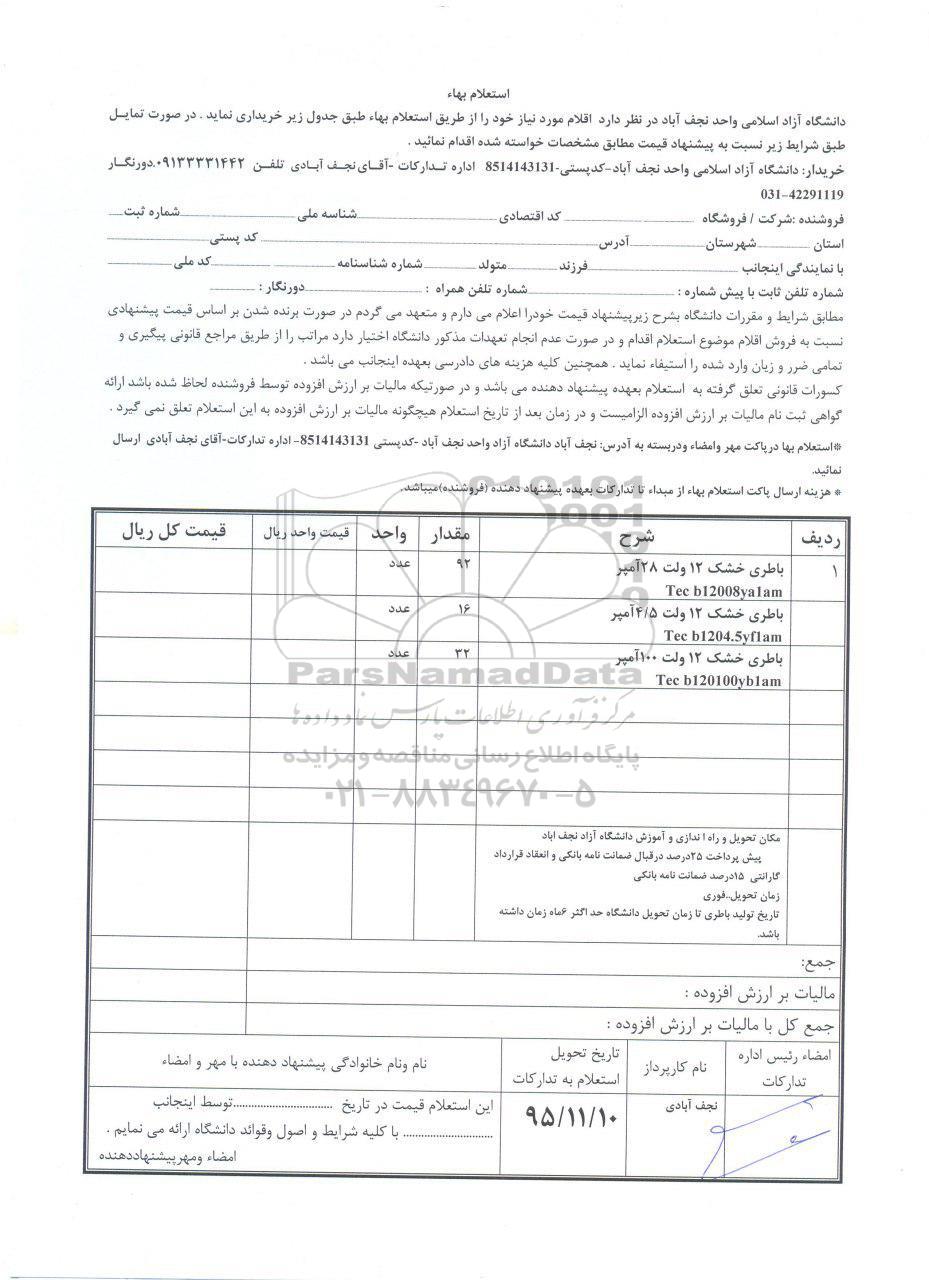 استعلام بهاء
دانشگاه آزاد اسلامی واحد نجف آباد در نظر دارد اقلام مورد نیاز خود را از طریق استعلام بهاء طبق جدول زیر خریداری نماید . در صورت تمایل
طبق شرایط زیر نسبت به پیشنهاد قیمت مطابق مشخصات خواسته شده اقدام نمائید .
خریدار: دانشگاه آزاد اسلامی واحد نجف آباد-کدپستی-8514143131 اداره تدارکات -آقای نجف آبادی تلفن ۰۹۱۳۳۳۳۱۴۴۲.دورنگار
031-42291119
فروشنده :شرکت / فروشگاه کد اقتصادی شناسه ملی شماره ثبت
استان شهرستان آدرس کد پستی
با نمایندگی اینجانب فرزند متولد شماره شناسنامه کد ملی
شماره تلفن ثابت با پیش شماره : شماره تلفن همراه : دورنگار :
مطابق شرایط و مقررات دانشگاه بشرح زیرپیشنهاد قیمت خودرا اعلام می دارم و متعهد می گردم در صورت برنده شدن بر اساس قیمت پیشنهادی
نسبت به فروش اقلام موضوع استعلام اقدام و در صورت عدم انجام تعهدات مذکور دانشگاه اختیار دارد مراتب را از طریق مراجع قانونی پیگیری و
تمامی ضرر و زیان وارد شده را استیفاء نماید . همچنین کلیه هزینه های دادرسی بعهده اینجانب می باشد .
کسورات قانونی تعلق گرفته به استعلام بعهده پیشنهاد دهنده می باشد و در صورتیکه مالیات بر ارزش افزوده توسط فروشنده لحاظ شده باشد ارائه
گواهی ثبت نام مالیات بر ارزش افزوده الزامیست و در زمان بعد از تاریخ استعلام هیچگونه مالیات بر ارزش افزوده به این استعلام تعلق نمی گیرد .
*استعلام بها درپاکت مهر وامضاء ودربسته به آدرس: نجف آباد دانشگاه آزاد واحد نجف آباد -کدپستی 8514143131- اداره تدارکات-آقای نجف آبادی ارسال
نمائید.
* هزینه ارسال پاکت استعلام بهاء از مبداء تا تدارکات بعهده پیشنهاد دهنده (فروشنده)میباشد.
ردیف شرح مقدار واحد قیمت واحد ریال قیمت کل ریال
۱ باطری خشک ۱۲ ولت ۲۸آمپر ۹۲ عدد
Tec b12008ya1am
باطری خشک ۱۲ ولت ۴/۵آمپر ۱۶ عدد
Tec b1204.5yf1am
باطری خشک ۱۲ ولت ۱۰۰آمپر ۳۲ عدد
Tec b120100yb1am
ParsNamadData
مرکز فرآوری اطلاعات پارس نماد داده ها
پایگاه اطلاع رسانی مناقصه و مزایده
۰۲۱-۸۸۳۴۹۶۷۰-۵
مکان تحویل و راه اندازی و آموزش دانشگاه آزاد نجف اباد
پیش پرداخت ۲۵درصد درقبال ضمانت نامه بانکی و انعقاد قرارداد
گارانتی ۱۵درصد ضمانت نامه بانکی
زمان تحویل..فوری
تاریخ تولید باطری تا زمان تحویل دانشگاه حد اکثر ۶ماه زمان داشته
باشد.
جمع:
مالیات بر ارزش افزوده :
جمع کل با مالیات بر ارزش افزوده :
امضاء رئیس اداره تدارکات
نام کارپرداز
تاریخ تحویل استعلام به تدارکات
نام ونام خانوادگی پیشنهاد دهنده با مهر و امضاء
نجف آبادی
۹۵/۱۱/۱۰
این استعلام قیمت در تاریخ ..................................توسط اینجانب
.............................. با کلیه شرایط و اصول وقوائد دانشگاه ارائه می نمایم .
امضاء ومهرپیشنهاددهنده